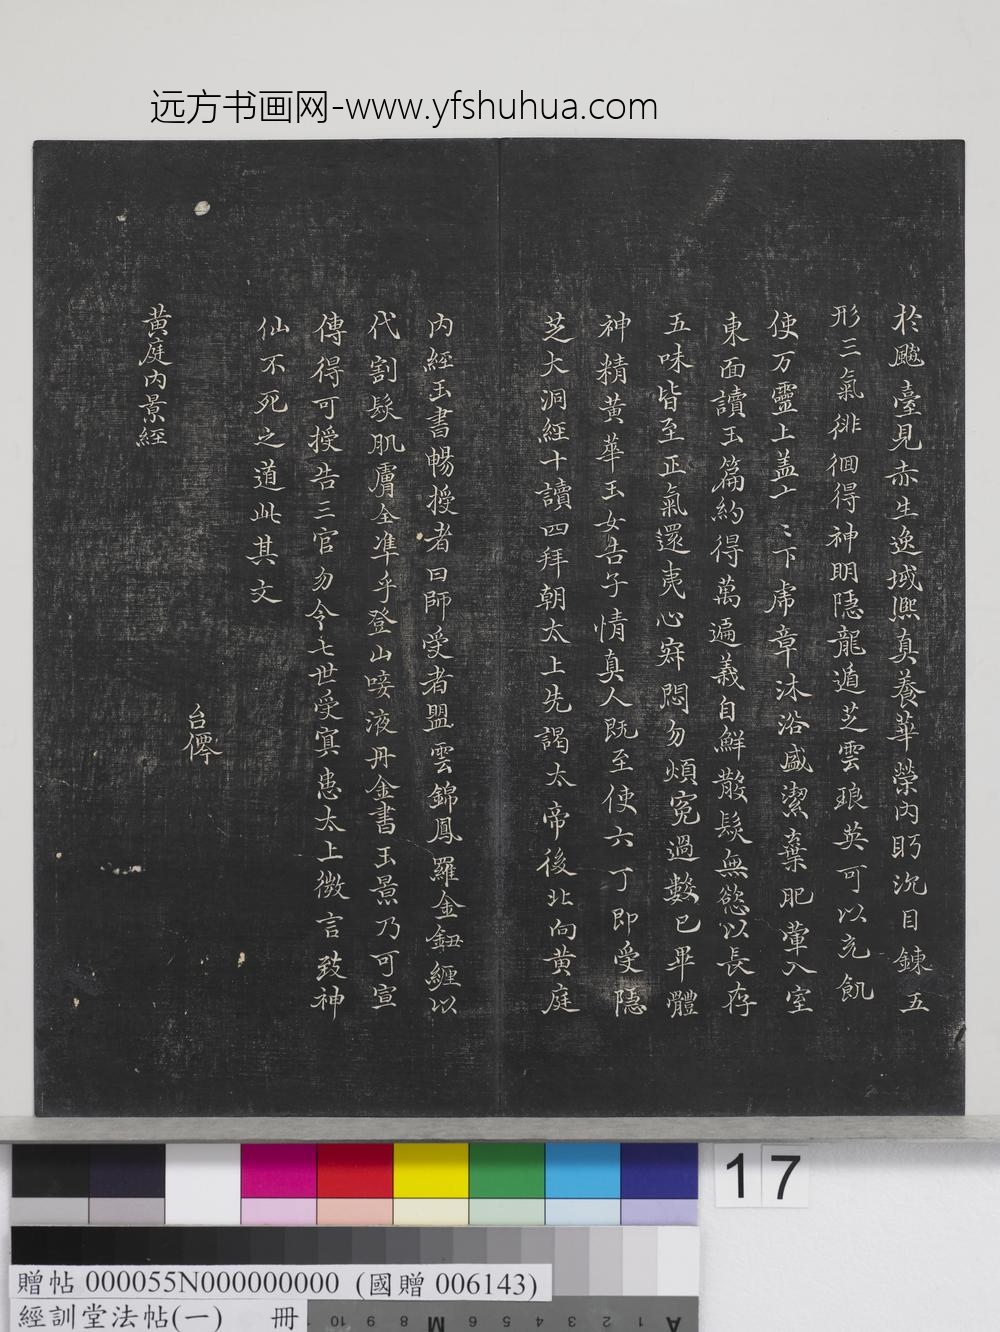 远方书画网-www.yfshuhua.com
於飈臺見赤生逸域熙真養華榮內眄沉目鍊五
形三氣徘徊得神明隱龍遁芝雲琅英可以充飢
使万靈上盖二二下席章沐浴盛潔棄肥葷入室
東面讀玉篇約得萬遍義自鮮散髮無慾以長存
五味皆至正氣還夷心寂悶勿煩寃過數已畢體
神精黃華玉女告子情真人既至使六丁即受隱
芝大洞經十讀四拜朝太上先謁太帝後北向黃庭
內經玉書暢授者曰師受者盟雲錦鳳羅金鈕纏以
代割髮肌膚全準乎登山唼液丹金書玉景乃可宣
傳得可授告三官勿令七世受冥患太上微言致神
仙不死之道此其文
台僊
黃庭內景經
17
贈帖 000055N000000000 (國贈 006143)
經訓堂法帖(一) 冊
A 1 2 3 4 5 6 M 8 9 10